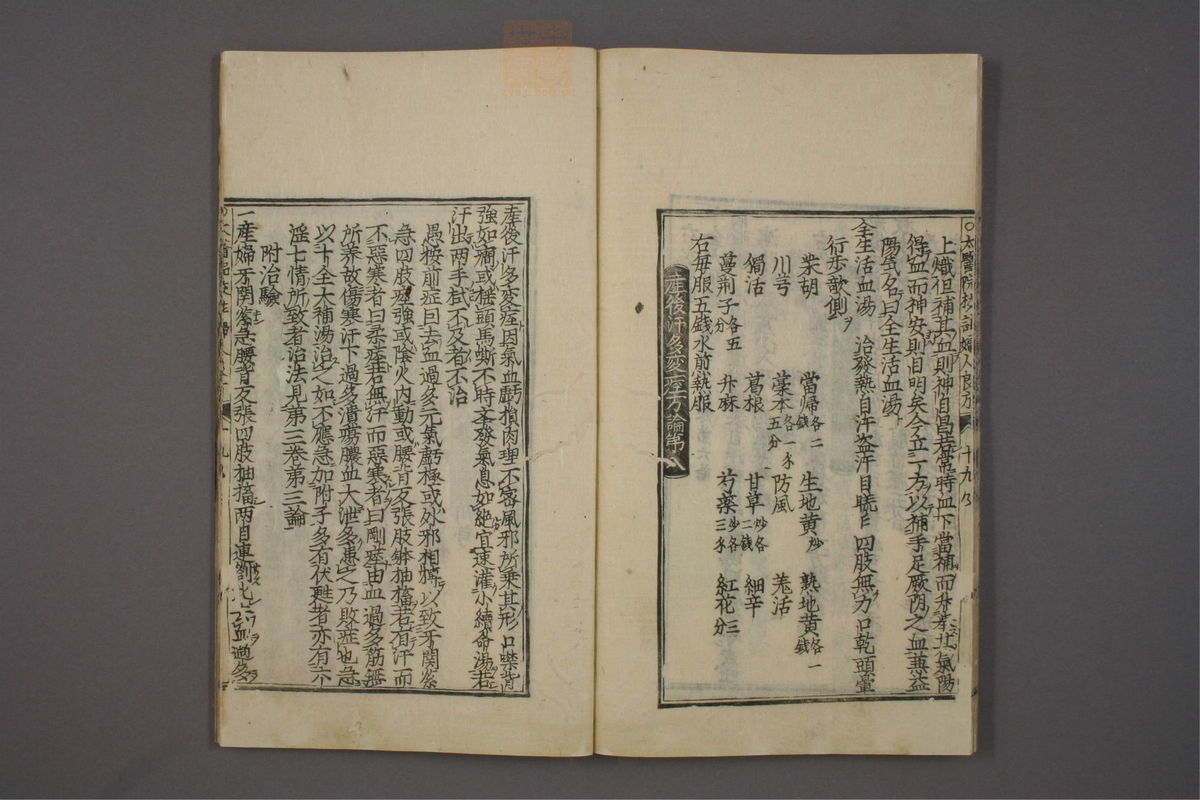 〇太醫院校註婦人良方 十九
上熾但補其血則神自昌若常時血下當補而升舉其氣陽
得血而神安則目明矣今立一方以補手足厥陰之血兼益
陽氣名曰全生活血湯
全生活血湯 治發熱自汗盗汗目䀮䀮四肢無力口乾頭暈
行歩欹側
柴胡 當帰各二錢 生地黄炒 熟地黄各一錢
川芎 藁本各一錢五分 防風 羗活
獨活 葛根 甘草炒各二錢 細辛
蔓荆子各五分 升麻 芍薬炒各三錢 紅花三分
右毎服五錢水煎熱服
産後汗多変痓方論第八
産後汗多変痓因氣血虧損肉理不密風邪所乗其形口噤背
強如癇或揺頭馬嘶不時舉發氣息如絶宜速灌小續命湯若
汗出兩手拭不及者不治
愚按前症曰去血過多元氣虧極或外邪相搏以致牙関緊
急四肢痙強或陰火内動或腰背反張肢体抽搐若有汗而
不惡寒者曰柔痓若無汗而惡寒者曰剛痓由血過多筋無
所養故傷寒汗下過多潰瘍膿血大泄多患之乃敗症也急
以十全大補湯治之如不應急加附子多有伏甦者亦有六
淫七情所致者治法見第三巻第三論
附治驗
一産婦牙関緊急腰背反張四肢抽搐兩目連劄